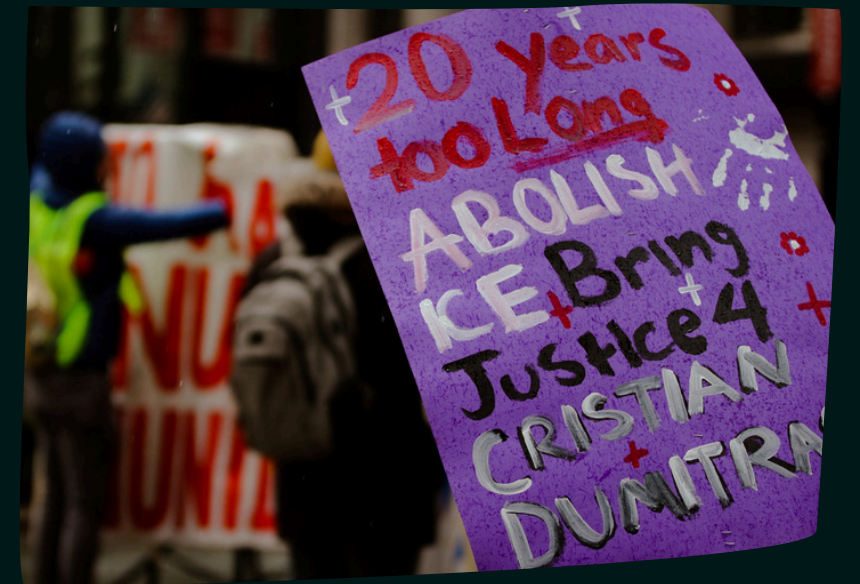 20 years
too Long
ABOLISH
ICE Bring
Justice 4
CRISTIAN
DUMITRAS
TO
NU
UNI